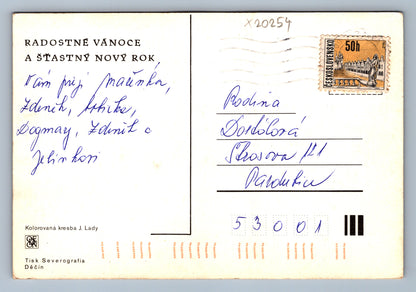 x20254
RADOSTNÉ VÁNOCE
A ŠŤASTNÝ NOVÝ ROK
Vám přejí Mařenka,
Zdeněk,
Dagmary, Zdeněk a
Jelínkovi
50h
ČESKOSLOVENSKO
TELČ
Rodina
Dostálová
Štrosova
Pardubice
53001
Kolorovaná kresba J. Lady
Tisk Severografia
Děčín